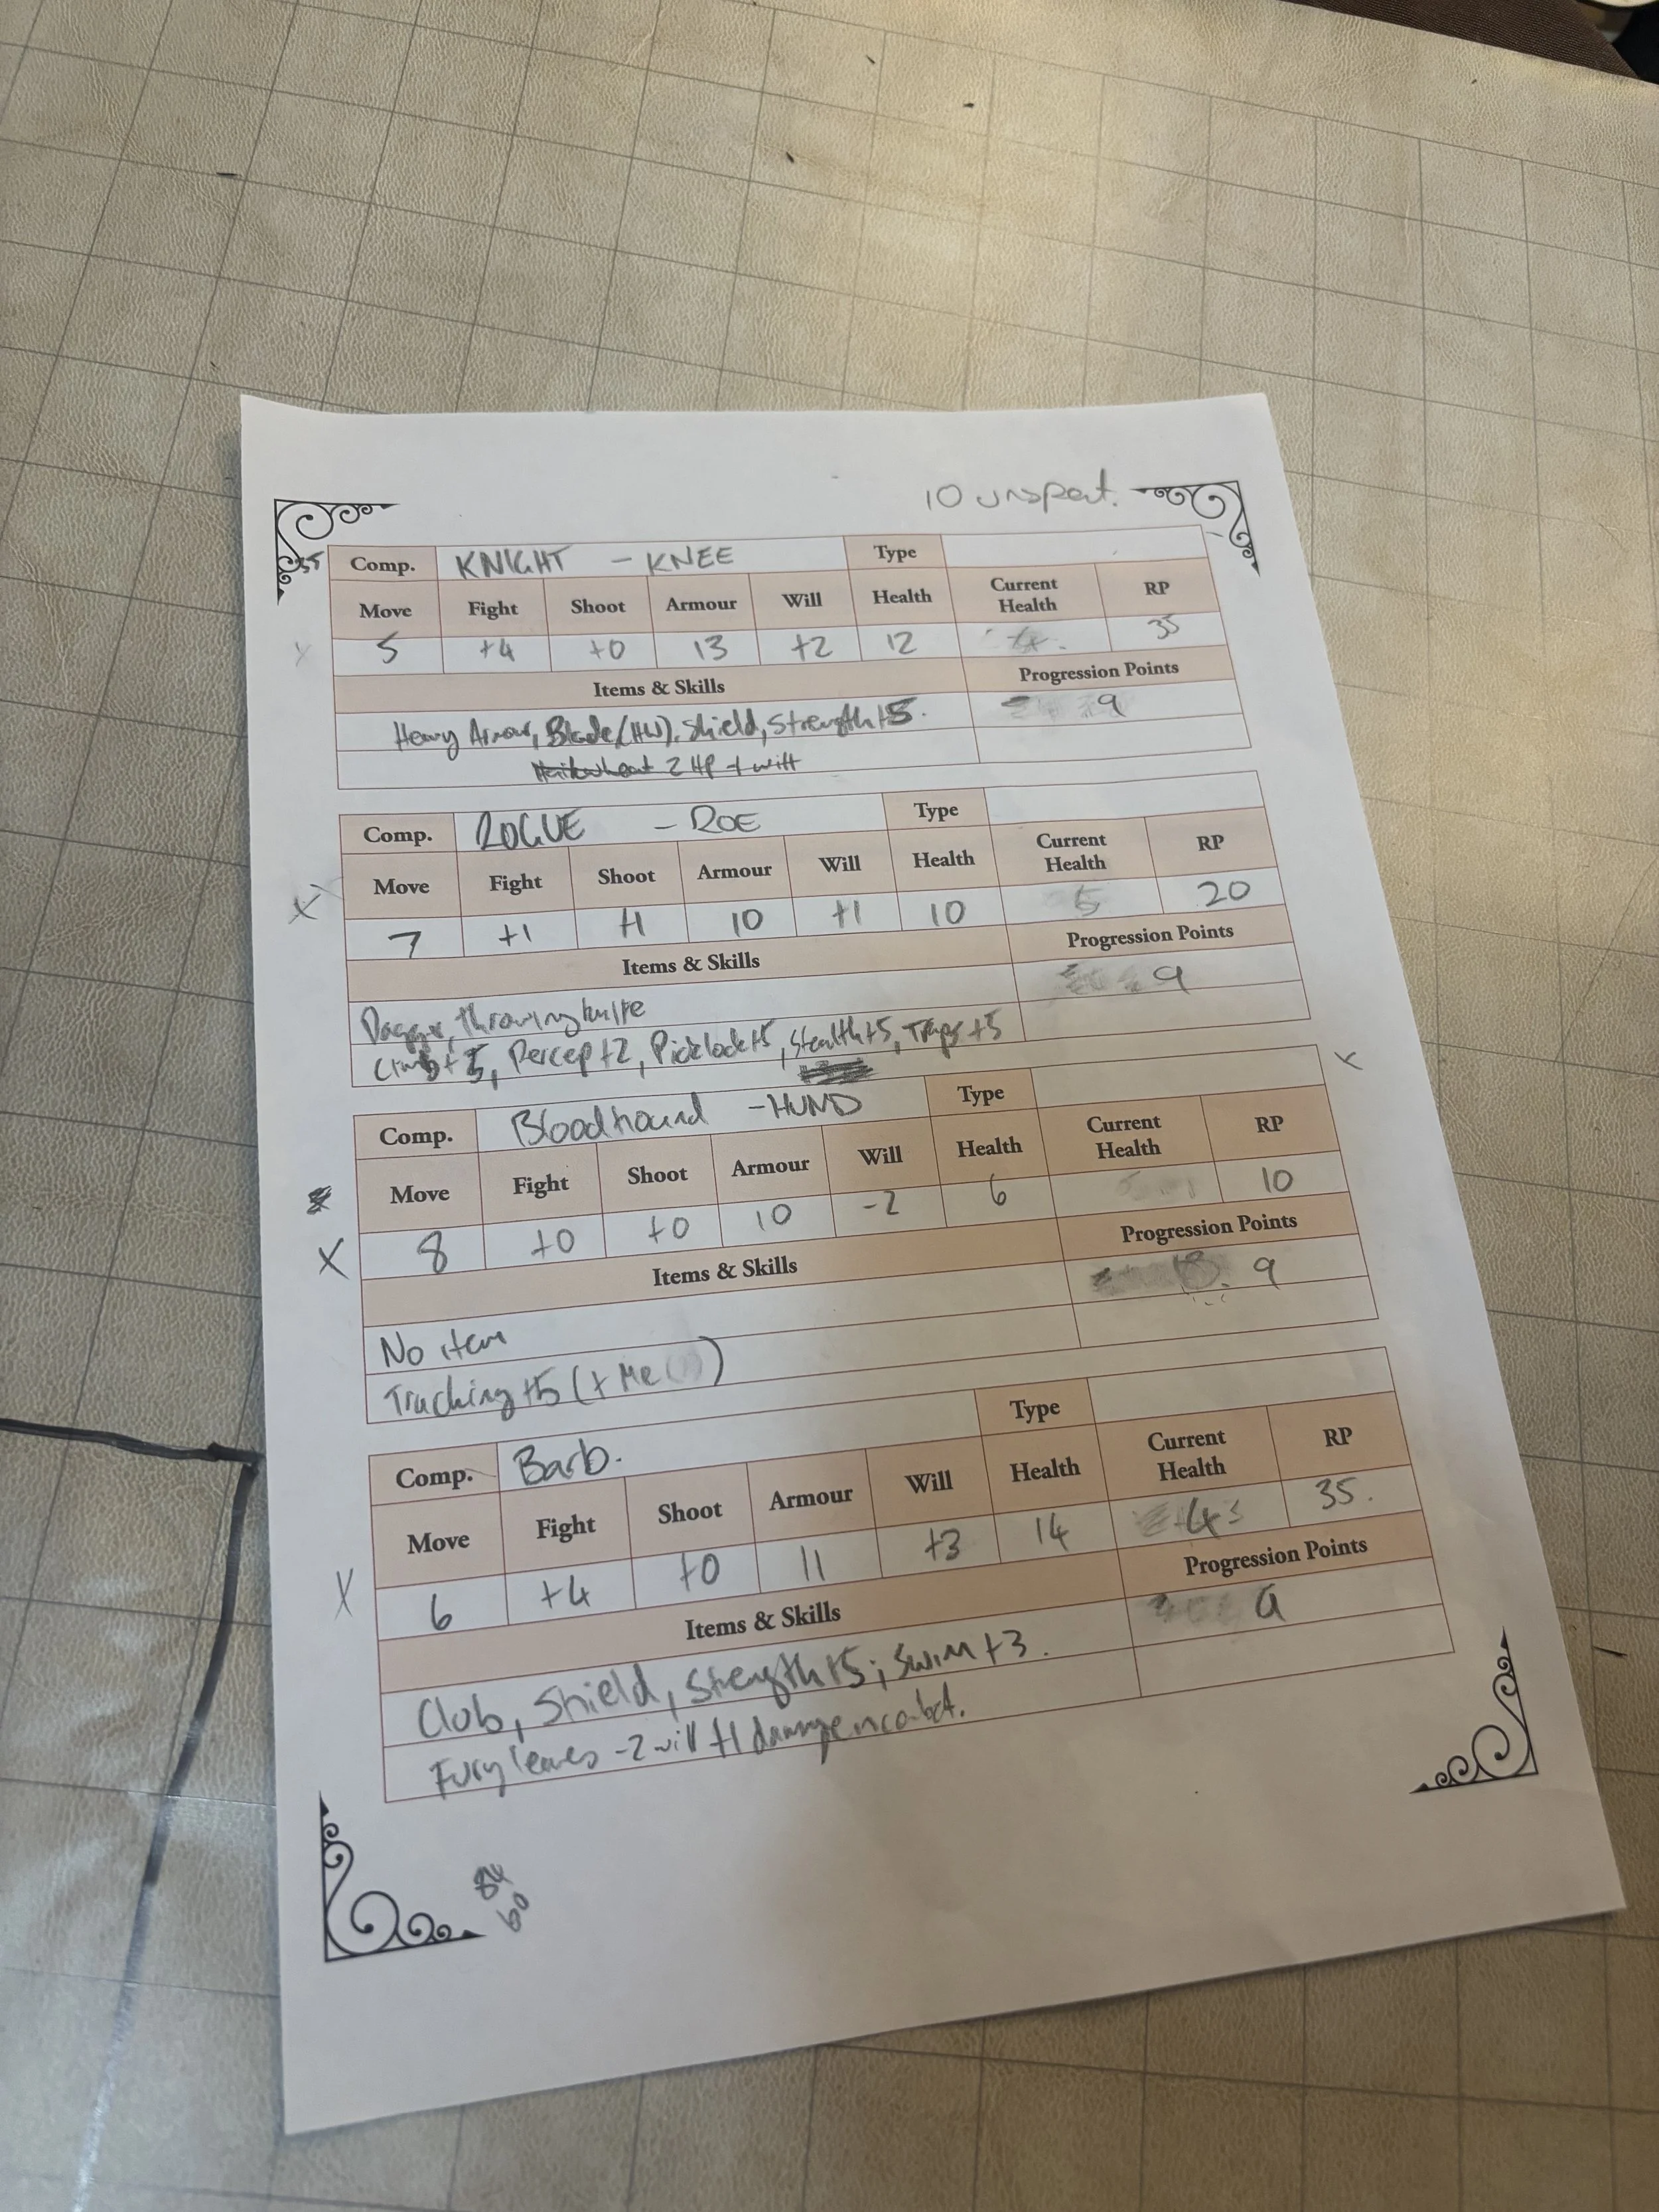 10 unspent.
35 Comp. KNIGHT - KNEE Type
Move Fight Shoot Armour Will Health Current Health RP
5 +4 +0 13 +2 12 4. 35
Items & Skills Progression Points
Heavy Armour, Blade (HW), Shield, Strength +5. 9
2 HP + will
Comp. ROGUE - ROE Type
Move Fight Shoot Armour Will Health Current Health RP
X 7 +1 +1 10 +1 10 5 20
Items & Skills Progression Points
Dagger, throwing knife 9
Climb +5, Percep +2, Picklock +5, Stealth +5, Traps +5
X
Comp. Bloodhound - HUND Type
Move Fight Shoot Armour Will Health Current Health RP
X 8 +0 +0 10 -2 6 10
Items & Skills Progression Points
No item 9
Tracking +5 (+ Me )
Comp. Barb. Type
Move Fight Shoot Armour Will Health Current Health RP
X 6 +4 +0 11 +3 14 4 35.
Items & Skills Progression Points
Club, Shield, Strength +5; Swim +3. 9
Fury leaves -2 will +1 damage in combat.
84
60